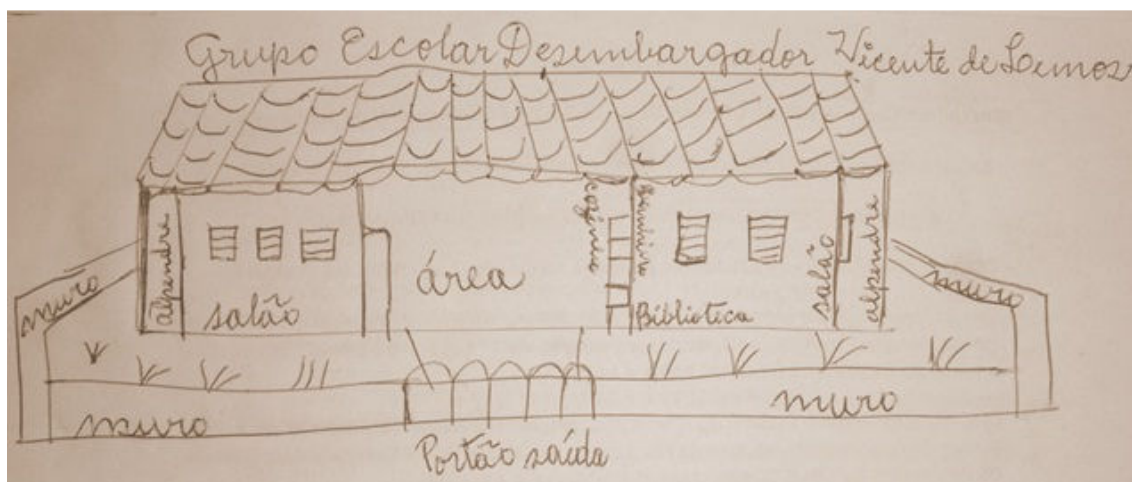 Grupo Escolar Desembargador Vicente de Lemos
alpendre
salão
área
cozinha
Banheiro
Biblioteca
salão
alpendre
muro
muro
muro
muro
Portão saída